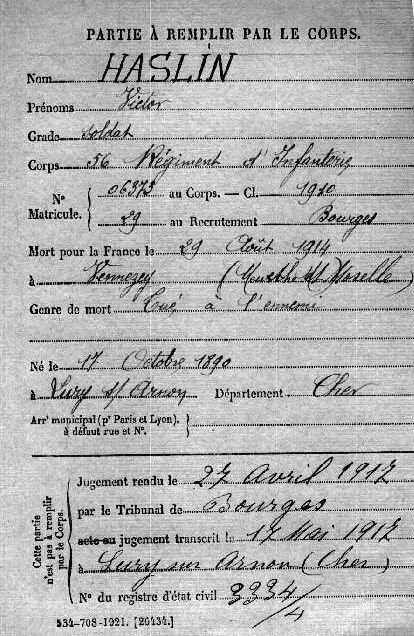 PARTIE À REMPLIR PAR LE CORPS.
Nom HASLIN
Prénoms Victor
Grade Soldat
Corps 56 Régiment d'Infanterie
N° Matricule. { 06373 au Corps. — Cl. 1910
29 au Recrutement Bourges
Mort pour la France le 29 Août 1914
à Vennezey (Meurthe et Moselle)
Genre de mort Tué à l'ennemi
Né le 17 Octobre 1890
à Lury s/ Arnon Département Cher
Arrt municipal (pr Paris et Lyon), à défaut rue et N°. }
Cette partie n'est pas à remplir par le Corps. {
Jugement rendu le 27 Avril 1917
par le Tribunal de Bourges
acte ou jugement transcrit le 17 Mai 1917
à Lury sur Arnon (Cher)
N° du registre d'état civil 3334/4
534-708-1921. [26434.]